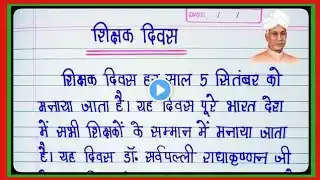 DATE / /
शिक्षक दिवस
शिक्षक दिवस हर साल 5 सितंबर को
मनाया जाता है। यह दिवस पूरे भारत देश
में सभी शिक्षकों के सम्मान में मनाया जाता
है। यह दिवस डॉ. सर्वपल्ली राधाकृष्णन जी